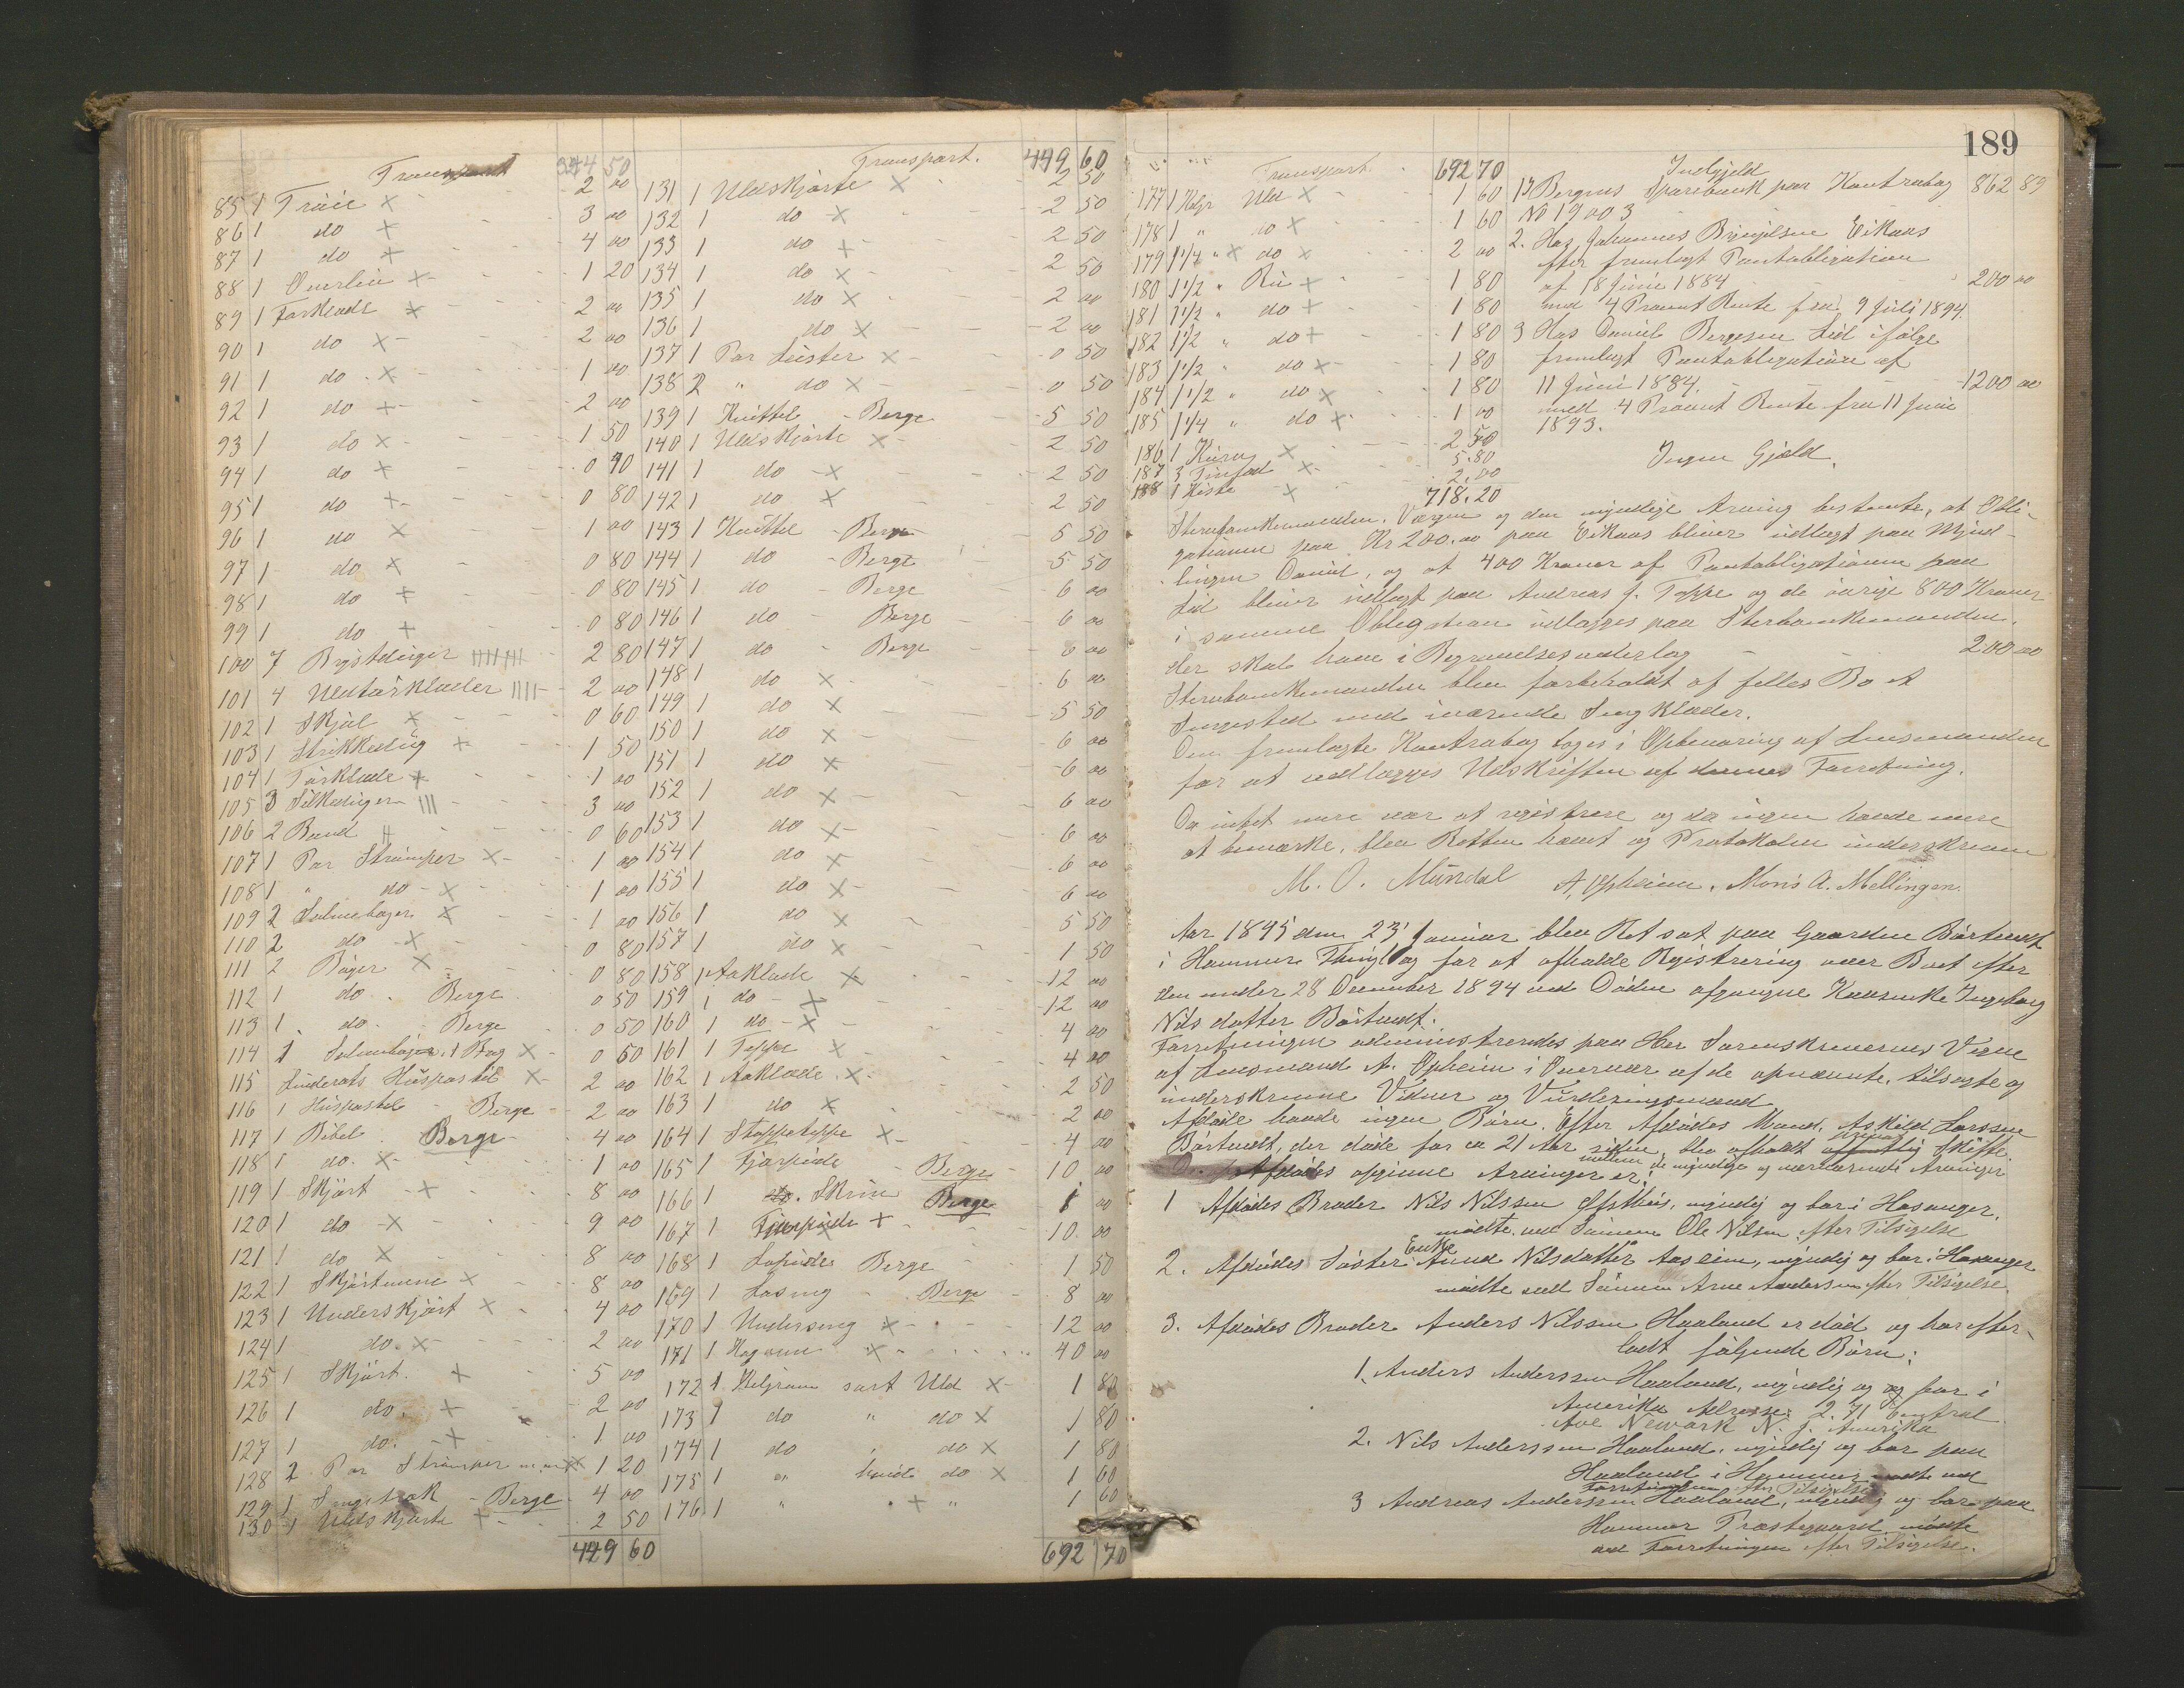 Transport 344 50
85 1 Tröie × 2 00
86 1 do × 3 00
87 1 do × 4 00
88 1 Overliv × 1 20
89 1 Forklæde × 2 00
90 1 do × 2 00
91 1 do × 1 00
92 1 do × 2 00
93 1 do × 1 50
94 1 do × 0 90
95 1 do × 0 80
96 1 do × 1 00
97 1 do × 0 80
98 1 do × 0 80
99 1 do × 0 80
100 7 Brystduger 2 80
101 4 Uldtørklæder 2 00
102 1 Skjal × 0 60
103 1 Strikketüg × 1 50
104 1 Törklæde × 1 00
105 3 Silkeduger 3 00
106 2 Baand 0 60
107 1 Par Strömper × 1 00
108 1 " do × 1 00
109 2 Salmebøger × 1 00
110 2 do × 0 80
111 2 Bøger × 0 80
112 1 do. Berge 0 50
113 1 do. Berge 0 50
114 1 Salmebog 1 Bog × 0 50
115 Linderots Huspostil × 2 00
116 1 Huspostil Berge 2 00
117 1 Bibel Berge 4 00
118 1 do. × 1 00
119 1 Skjört × 8 00
120 1 do × 9 00
121 1 do × 8 00
122 1 Skjört × 8 00
123 1 Underskjört × 4 00
124 1 do. × 2 00
125 1 Skjört. × 5 00
126 1 do. × 2 00
127 1 do. × 1 00
128 2 Par Strömper × 1 20
129 1 Berge 4 00
130 1 Uldskjorte × 2 50
449 60
Transport. 449 60
131 1 Uldskjorte × 2 50
132 1 do × 2 50
133 1 do × 2 50
134 1 do × 2 50
135 1 do × 2 00
136 1 do × 2 00
137 1 Par Lüster × 0 50
138 2 " do × 0 50
139 1 Kvittel Berge 5 50
140 1 Uldskjorte × 2 50
141 1 do × 2 50
142 1 do × 2 50
143 1 Kvittel Berge 5 50
144 1 do Berge 5 50
145 1 do Berge 6 00
146 1 do Berge 6 00
147 1 do Berge 6 00
148 1 do × 6 00
149 1 do × 5 50
150 1 do × 6 00
151 1 do × 6 00
152 1 do × 6 00
153 1 do × 6 00
154 1 do × 6 00
155 1 do × 6 00
156 1 do × 5 50
157 1 do × 1 50
158 1 Aaklæde × 12 00
159 1 do × 12 00
160 1 do × 4 00
161 1 Teppe × 4 00
162 1 Aaklæde × 2 50
163 1 do × 2 00
164 1 Stoppeteppe × 4 00
165 1 Fjørpude Berge 10 00
166 1 do. Skrin Berge 1 00
167 1 Fjørpude × 10 00
168 1 Lopude Berge 1 50
169 1 Loseng Berge 8 00
170 1 Underseng × 12 00
171 1 Kogovn × 40 00
172 1 Kilgram sort Uld × 1 80
173 1 do " do × 1 80
174 1 do " do × 1 80
175 1 " hvid do × 1 60
176 1 " × " 1 60
692 70
189
Transport. 692 70
177 1 Kilgr Uld × 1 60
178 1 " do × 1 60
179 1 1/4 " × do × 2 00
180 1 1/2 " Ru × 1 80
181 1 1/2 " do × 1 80
182 1 1/2 " do × 1 80
183 1 1/2 " do × 1 80
184 1 1/2 " do × 1 80
185 1 1/4 " do × 1 00
186 1 Kurv × 2 50
187 3 Tinfad × 5.80
188 1 Kiste × 2.00
718.20
Indgjeld
1) Bergens Sparebank paa Kontrabog 862 89
No 19003
2. Hos Johannes Brynjelsen Eikaas
efter fremlagt Pantobligation
af 18 Juni 1884 200 00
med 4 Procent Rente fra 9 Juli 1894.
3 Hos Daniel Bergesen Lid ifölge
fremlagt Pantobligation af
11 Juni 1884. 1200 00
med 4 Procent Rente fra 11 Juni
1893.
Ingen Gjæld.
Stervbænkemanden, Værgen og den myndige Arving bestemte, at Obli-
gationen paa Kr 200.00 paa Eikaas bliver udlagt paa Mynd-
lingen Daniel, og at 400 Kroner af Pantobligationen paa
Lid bliver udlagt paa Andreas J. Toppe og de övrige 800 Kroner
i samme Obligation udlægges paa Stervbænkemanden,
der skal have i Begravelsesudlæg 200 00
Stervbænkemanden blev forbeholdt af felles Bo et
Sengested med iværende Sengklæder.
Den fremlagte Kontrabog toges i Opbevaring af Lensmanden
for at vedlægges Udskriften af denne Forretning.
Da intet mere var at registrere og da ingen havde mere
at bemærke, blev Retten hævet og Protokolen underskreven
M. O. Mündal A, Opheim, Mons A. Mellingen.
Aar 1895 den 23' Januar blev Ret sat paa Gaarden Börtveit
i Hammer Thinglag for at afholde Registrering over Boet efter
den under 28 December 1894 ved Döden afgangne Kaarenke Ingeborg
Nilsdatter Börtvedt.
Forretningen administreredes paa Her Sorenskriverens Vegne
af Lensmand A. Opheim i Overvær af de opnævnte, tilsagte og
underskrevne Vidner og Vurderingsmænd
Afdöde havde ingen Börn. Efter Afdödes Mand, Askild Larssen
Börtvedt, der döde for ca 21 Aar siden, blev afholdt Skifte.
mellem de myndige og nærværende Arvinger
Afdödes opgivne Arvinger er:
1 Afdödes Broder Nils Nilssen Espthus, myndig og bor i Hosanger,
mödte ved Sönnen Ole Nilsen efter Tilsigelse
2. Afdödes Söster Enke Anna Nilsdatter Aaseim, myndig og bor i Hosanger
mödte ved Sönnen Arne Andersen efter Tilsigelse.
3. Afdödes Broder Anders Nilssen Haaland er död og har efter-
ladt fölgende Börn:
1. Anders Anderssen Haaland, myndig og og for i
Amerika Adresse: 271 Central
Ave Newark N. J. Amerika
2. Nils Anderssen Haaland, myndig og bor paa
Haaland i Hammer mödte ved
Forretningen efter Tilsigelse
3 Andreas Anderssen Haaland, myndig og bor paa
Hammer Præstegaard mödte
ved Forretningen efter Tilsigelse.